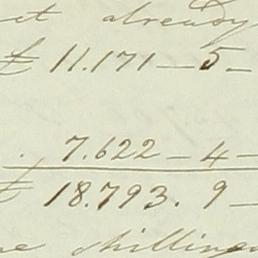 et already
£ 11.171 — 5 —
7.622 — 4 —
£ 18.793. 9 —
ne shilling